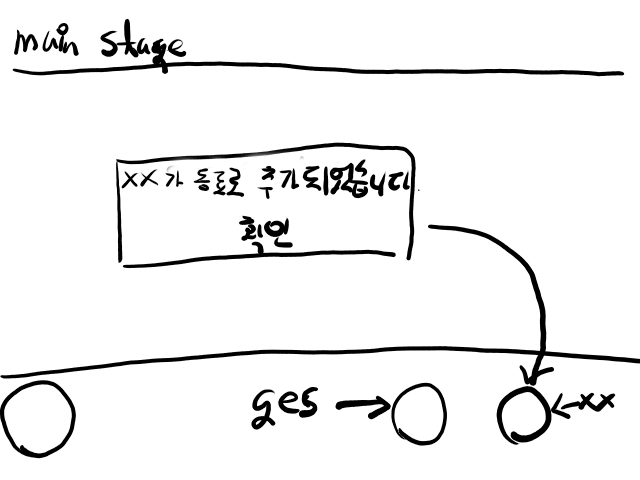 main stage
XX가 동료로 추가되었습니다
확인
ges
xx